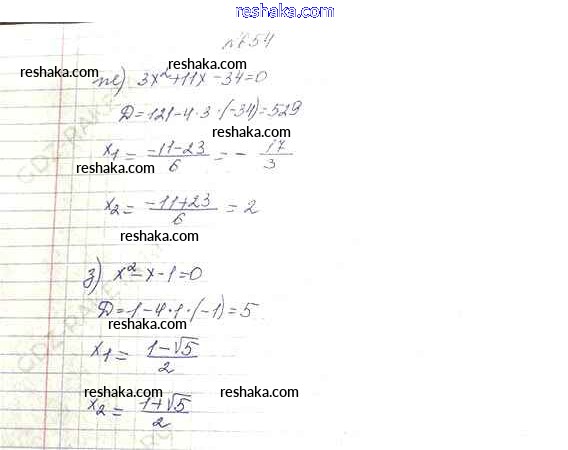 reshaka.com
№654
reshaka.com reshaka.com
ж) 3x²+11x-34=0
D=121-4·3·(-34)=529
reshaka.com
x₁= (-11-23)/6 = - 17/3
reshaka.com
x₂= (-11+23)/6 = 2
reshaka.com
з) x²-x-1=0
D=1-4·1·(-1)=5
reshaka.com
x₁= (1-√5)/2
reshaka.com reshaka.com
x₂= (1+√5)/2